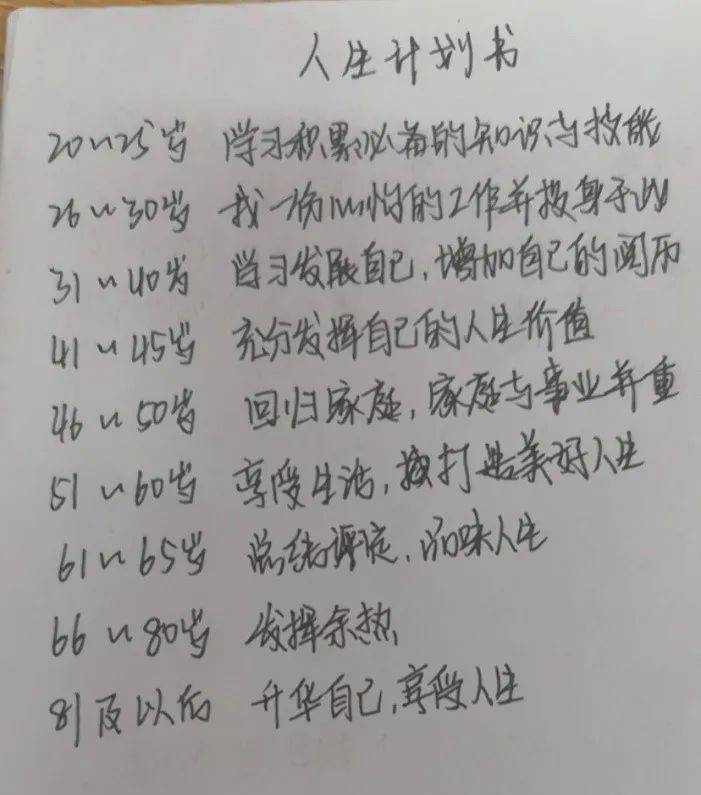 人生计划书
20~25岁 学习积累必备的知识与技能
26~30岁 找一份心怡的工作并投身于此
31~40岁 学习发展自己，增加自己的阅历
41~45岁 充分发挥自己的人生价值
46~50岁 回归家庭，家庭与事业并重
51~60岁 享受生活，打造美好人生
61~65岁 总结评定，品味人生
66~80岁 发挥余热
81及以后 升华自己，享受人生